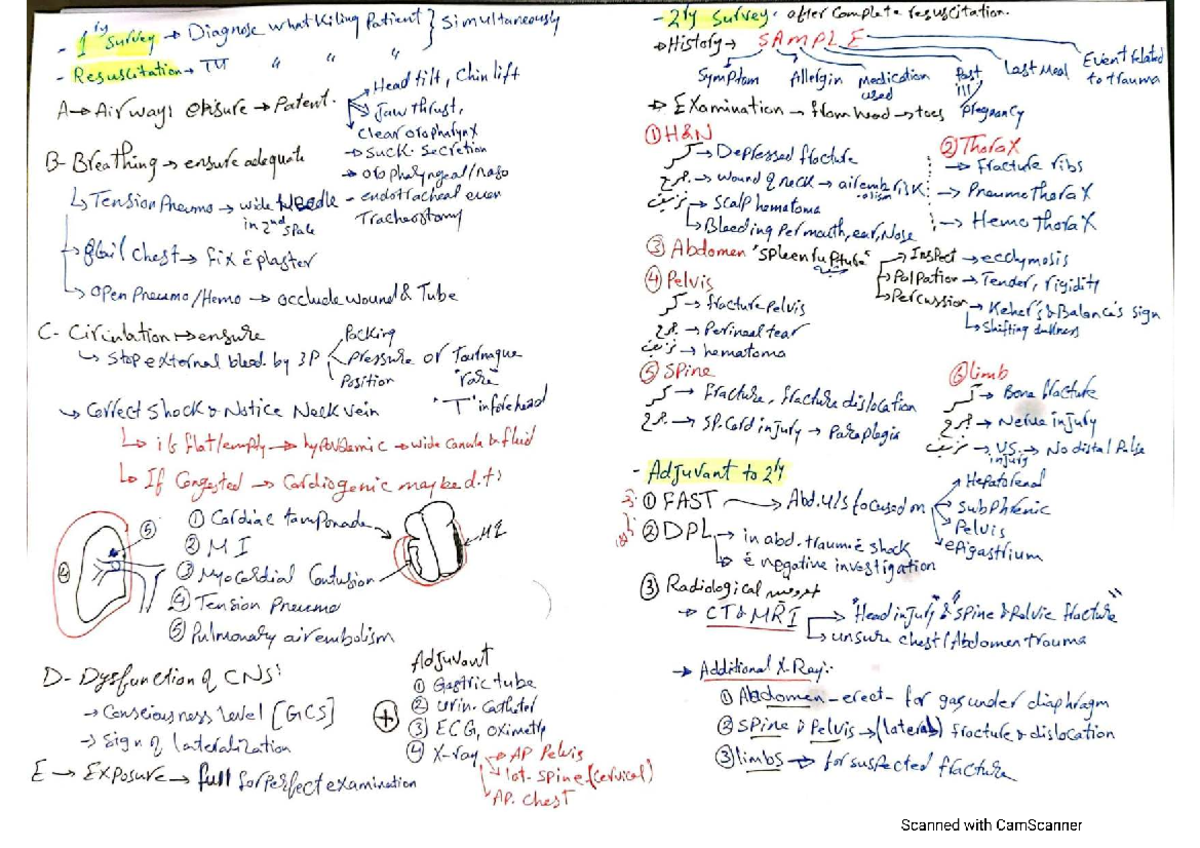 - 1ry Survey → Diagnose what Kiling Patient } Simultaneously
- Resuscitation → TTT " " "
A → Airway: ensure → Patent.
Head tilt, Chin lift
Jaw thrust,
Clear oropharynx
→ Suck. Secretion
→ oropharyngeal/naso
- endotracheal even
Tracheostomy
B- Breathing → ensure adequate
↳ Tension Pneumo → wide Needle
in 2nd space
→ flail Chest → fix ē plaster
↳ open Pneumo/Hemo → occlude wound & Tube
C- Circulation → ensure
↳ Stop external bleed. by 3P
Packing
Pressure or Tourniquet
"rare"
Position
"T" in forehead
↳ Correct Shock & Notice Neck vein
↳ if flat/empty → hypovolemic → wide canula & fluid
↳ If Congested → Cardiogenic may be d.t:
① Cardiac tamponade
② M I
③ Myocardial Contusion
④ Tension Pneumo
⑤ Pulmonary air embolism
⑤
④
MI
D- Dysfunction of CNS:
→ Consciousness level [GCS]
→ Sign of lateralization
E → Exposure → full for perfect examination
+
Adjuvant
① Gastric tube
② Urin. Catheter
③ ECG, oximetry
④ X-ray → AP Pelvis
→ lat. Spine (Cervical)
→ AP. Chest
- 2ry Survey. after Complete resuscitation.
→ History → SAMPLE
Symptom
Allergin
Medication
used
Past
ill
pregnancy
Last Meal
Event related
to trauma
→ Examination → from head → toes
① H&N
كسر → Depressed fracture
جرح → wound of neck → air embolism risk
نزيف → Scalp hematoma
↳ Bleeding per mouth, ear, Nose
② Thorax
→ Fracture ribs
→ Pneumothorax
→ Hemothorax
③ Abdomen "Spleen rupture"
Inspect → ecchymosis
Palpation → Tender, rigidity
Percussion → Keher's & Balance's sign
↳ Shifting dullness
④ Pelvis
كسر → fracture pelvis
جرح → Perineal tear
نزيف → hematoma
⑤ Spine
كسر → Fracture, fracture dislocation
جرح → SP. Cord injury → Paraplegia
⑥ limb
كسر → Bone fracture
جرح → Nerve injury
نزيف → VS. injury → No distal Pulse
- Adjuvant to 2ry
① FAST → Abd. U/S focused on
Hepatorenal
Subphrenic
Pelvis
epigastrium
② DPL → in abd. trauma ē shock
↳ ē negative investigation
③ Radiological
→ CT & MRI → "Head injury" & "Spine & Pelvic fracture"
↳ unsure chest/Abdomen trauma
→ Additional X-Ray:-
① Abdomen - erect - for gas under diaphragm
② Spine & Pelvis → (lateral) fracture & dislocation
③ limbs → for suspected fracture
Scanned with CamScanner